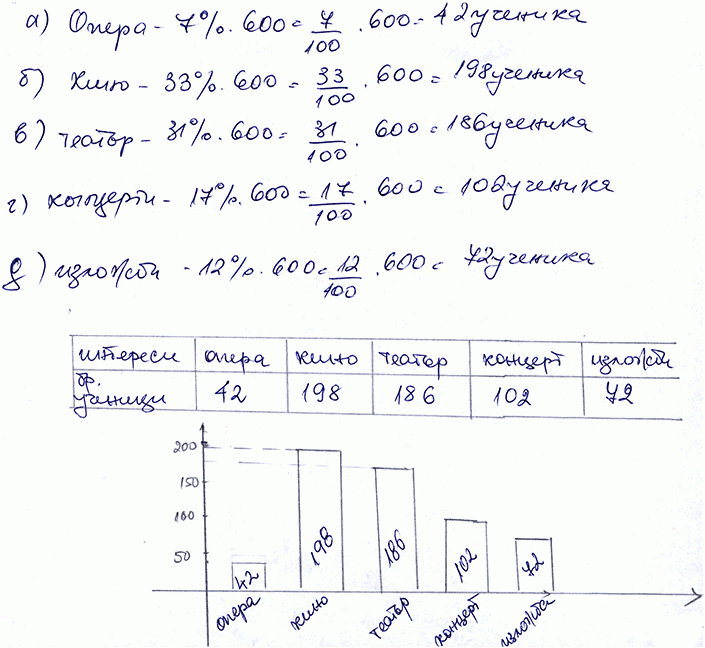 а) Опера - 7%. 600 = 7/100 . 600 = 42 ученика
б) кино - 33%. 600 = 33/100 . 600 = 198 ученика
в) театър - 31%. 600 = 31/100 . 600 = 186 ученика
г) концерти - 17%. 600 = 17/100 . 600 = 102 ученика
д) изложби - 12%. 600 = 12/100 . 600 = 72 ученика
интереси опера кино театър концерт изложби
бр. ученици 42 198 186 102 72
200
150
100
50
42 198 186 102 72
опера кино театър концерт изложба